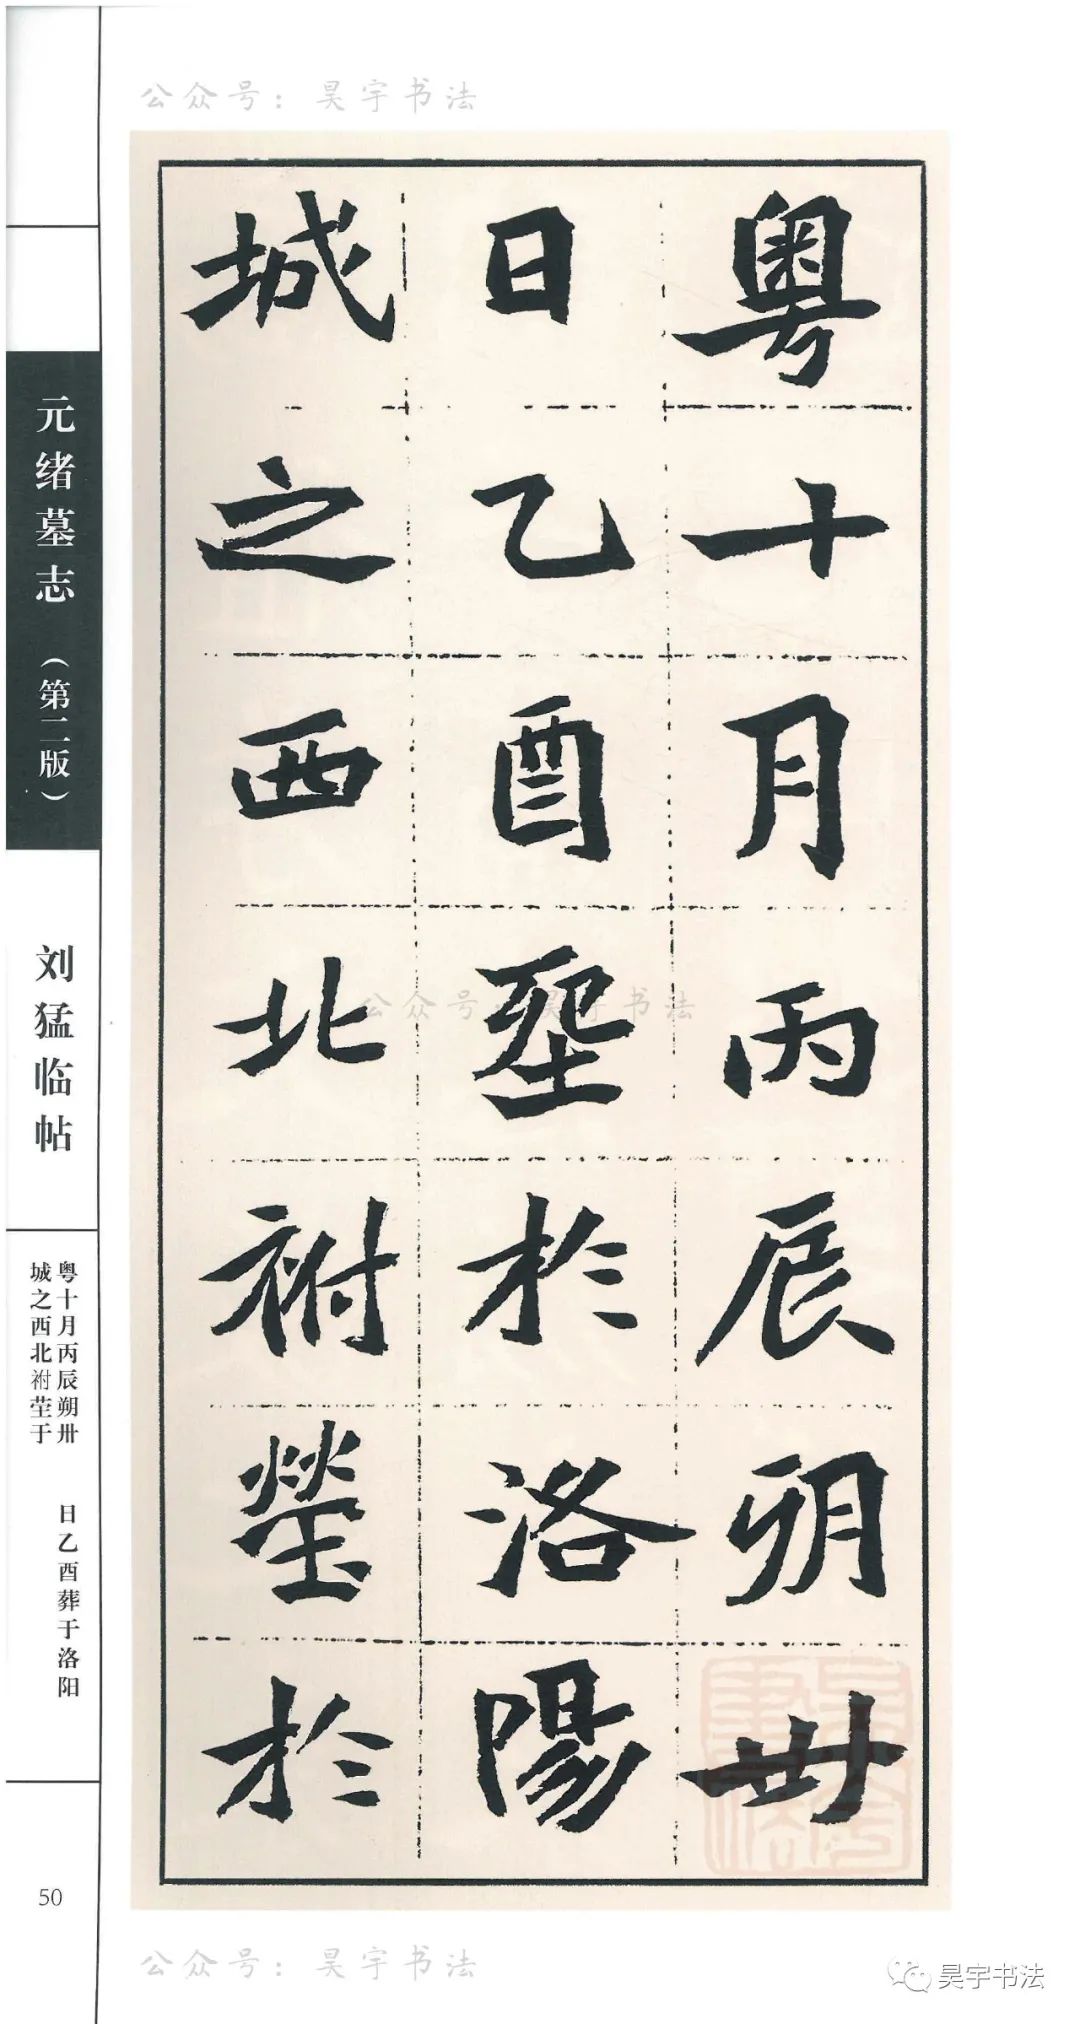 公众号：昊宇书法
粵十月丙辰朔卅
日乙酉於洛陽
城之西北祔塋於
公众号：昊宇书法
元绪墓志（第二版）
刘猛临帖
粤十月丙辰朔卅　日乙酉葬于洛阳
城之西北祔茔于
50
公众号：昊宇书法
昊宇书法